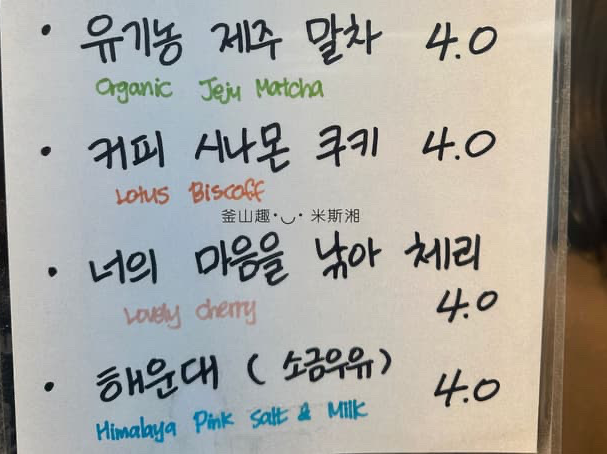 • 유기농 제주 말차 4.0
Organic Jeju Matcha
• 커피 시나몬 쿠키 4.0
Lotus Biscoff
釜山趣･◡･ 米斯湘
• 너의 마음을 낚아 체리
Lovely cherry 4.0
• 해운대 (소금우유) 4.0
Himalaya Pink Salt & Milk